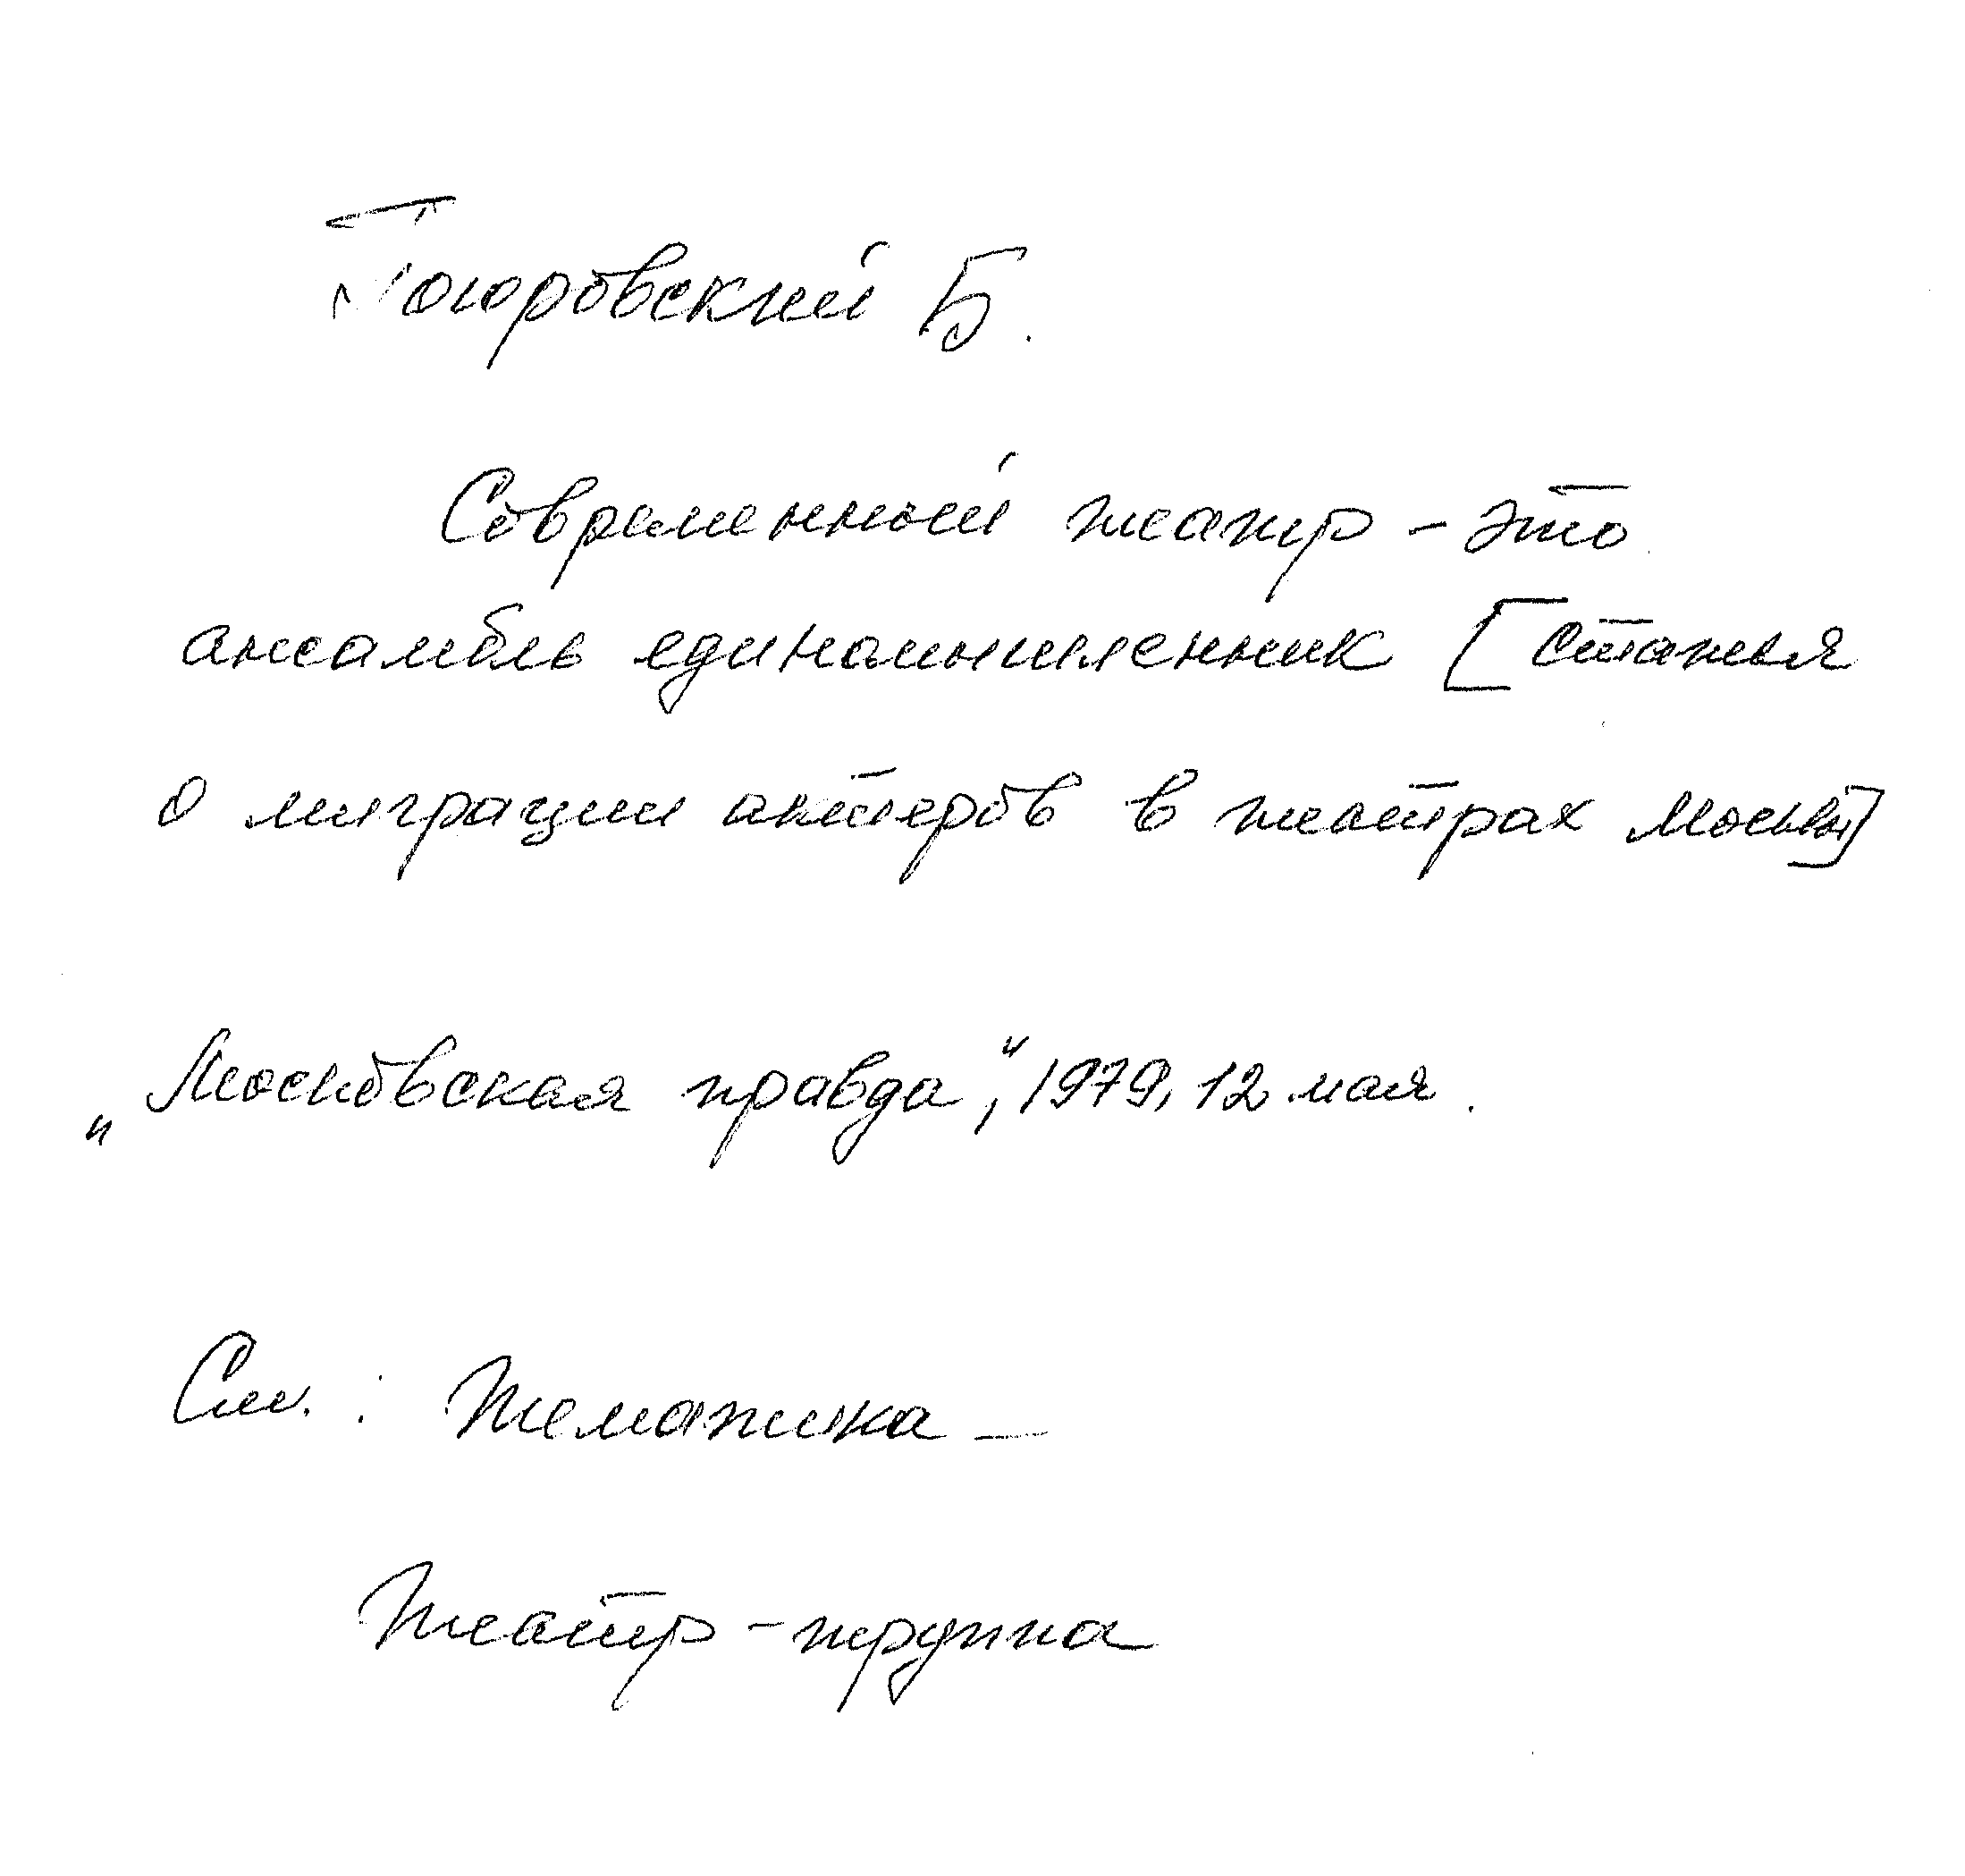 Поюровский Б.
Современный театр - это
ансамбль единомышленник [статья
о миграции актеров в театрах Москвы]
„Московская правда", 1979, 12 мая.
См.: Тематика -
Театр - труппа